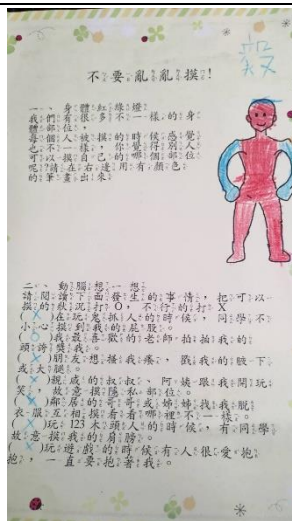 毅
不要亂亂摸!
一、身體紅綠燈
我們有很多不一樣的身
體部位,
每個人被摸的時候感覺
也不一樣,你覺得別人
可以摸自己的哪個部位
呢?請在右邊用有顏色
的筆畫出來
二、動腦想一想
請閱讀下面發生的事情,把可以
摸的狀況打O,不行的打X
( )在玩鬼抓人的時候,同學不
小心摸到我的屁股。
(O)我最喜歡的老師拍拍我的
頭誇獎我。
(X)朋友想搔我癢,戳我的腋下
或大腿。
(X)親戚的叔叔、阿姨跟我開玩
笑,故意摸隱私部位。
(X)鄰居的哥哥或姊姊找我脫
衣服互相摸看看哪裡不一樣。
(X)玩123木頭人的時候,有同學
故意摸我的肩膀。
(X)玩遊戲的時候有人很愛抱
抱,一直要抱著我。